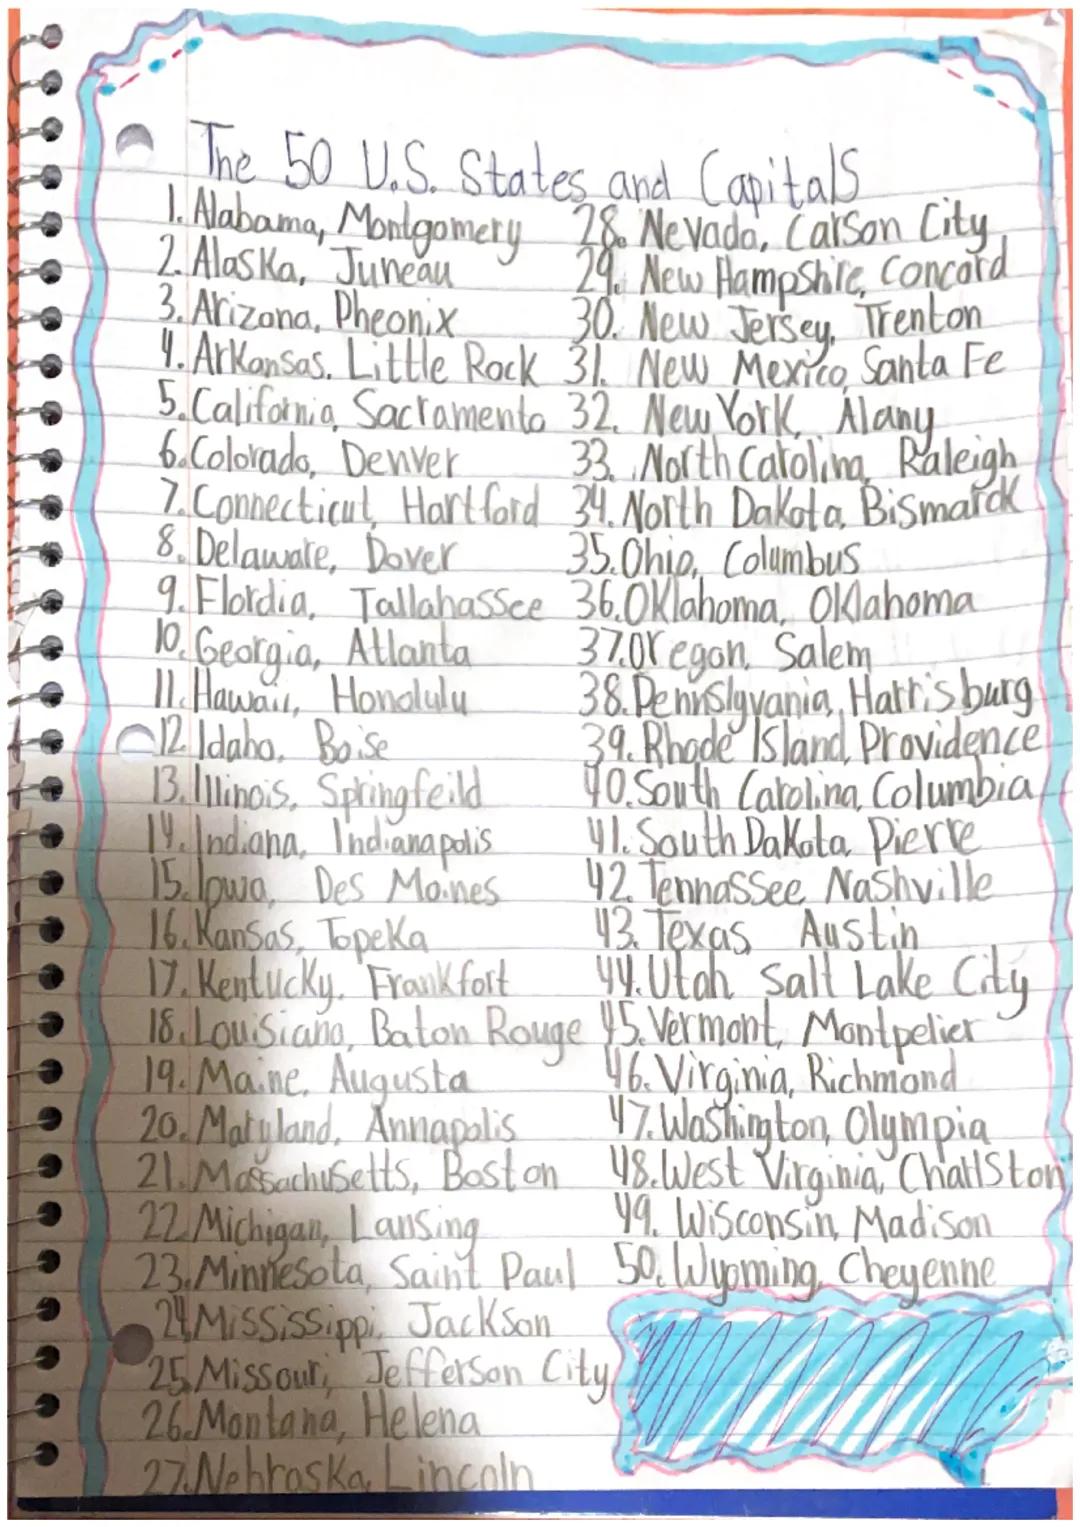 The 50 U.S. States and Capitals
1. Alabama, Montgomery
2. Alaska, Juneau
3. Arizona, Pheonix
4. Arkansas, Little Rock
5. California, Sacramento
6. Colorado, Denver
7. Connecticut, Hartford
8. Delaware, Dover
9. Flordia, Tallahassee
10. Georgia, Atlanta
11. Hawaii, Honolulu
12. Idaho, Boise
13. Illinois, Springfeild
14. Indiana, Indianapolis
15. Iowa, Des Moines
16. Kansas, Topeka
17. Kentucky, Frankfort
18. Louisiana, Baton Rouge
19. Maine, Augusta
20. Maryland, Annapolis
21. Massachusetts, Boston
22. Michigan, Lansing
23. Minnesota, Saint Paul
24. Mississippi, Jackson
25. Missouri, Jefferson City
26. Montana, Helena
27. Nebraska, Lincoln
28. Nevada, Carson City
29. New Hampshire, Concord
30. New Jersey, Trenton
31. New Mexico, Santa Fe
32. New York, Alany
33. North Carolina, Raleigh
34. North Dakota, Bismarck
35. Ohio, Columbus
36. Oklahoma, Oklahoma
37. Oregon, Salem
38. Pennslyvania, Harrisburg
39. Rhode Island, Providence
40. South Carolina, Columbia
41. South Dakota, Pierre
42. Tennassee, Nashville
43. Texas Austin
44. Utah Salt Lake City
45. Vermont, Montpelier
46. Virginia, Richmond
47. Washington, Olympia
48. West Virginia, Charlston
49. Wisconsin, Madison
50. Wyoming, Cheyenne